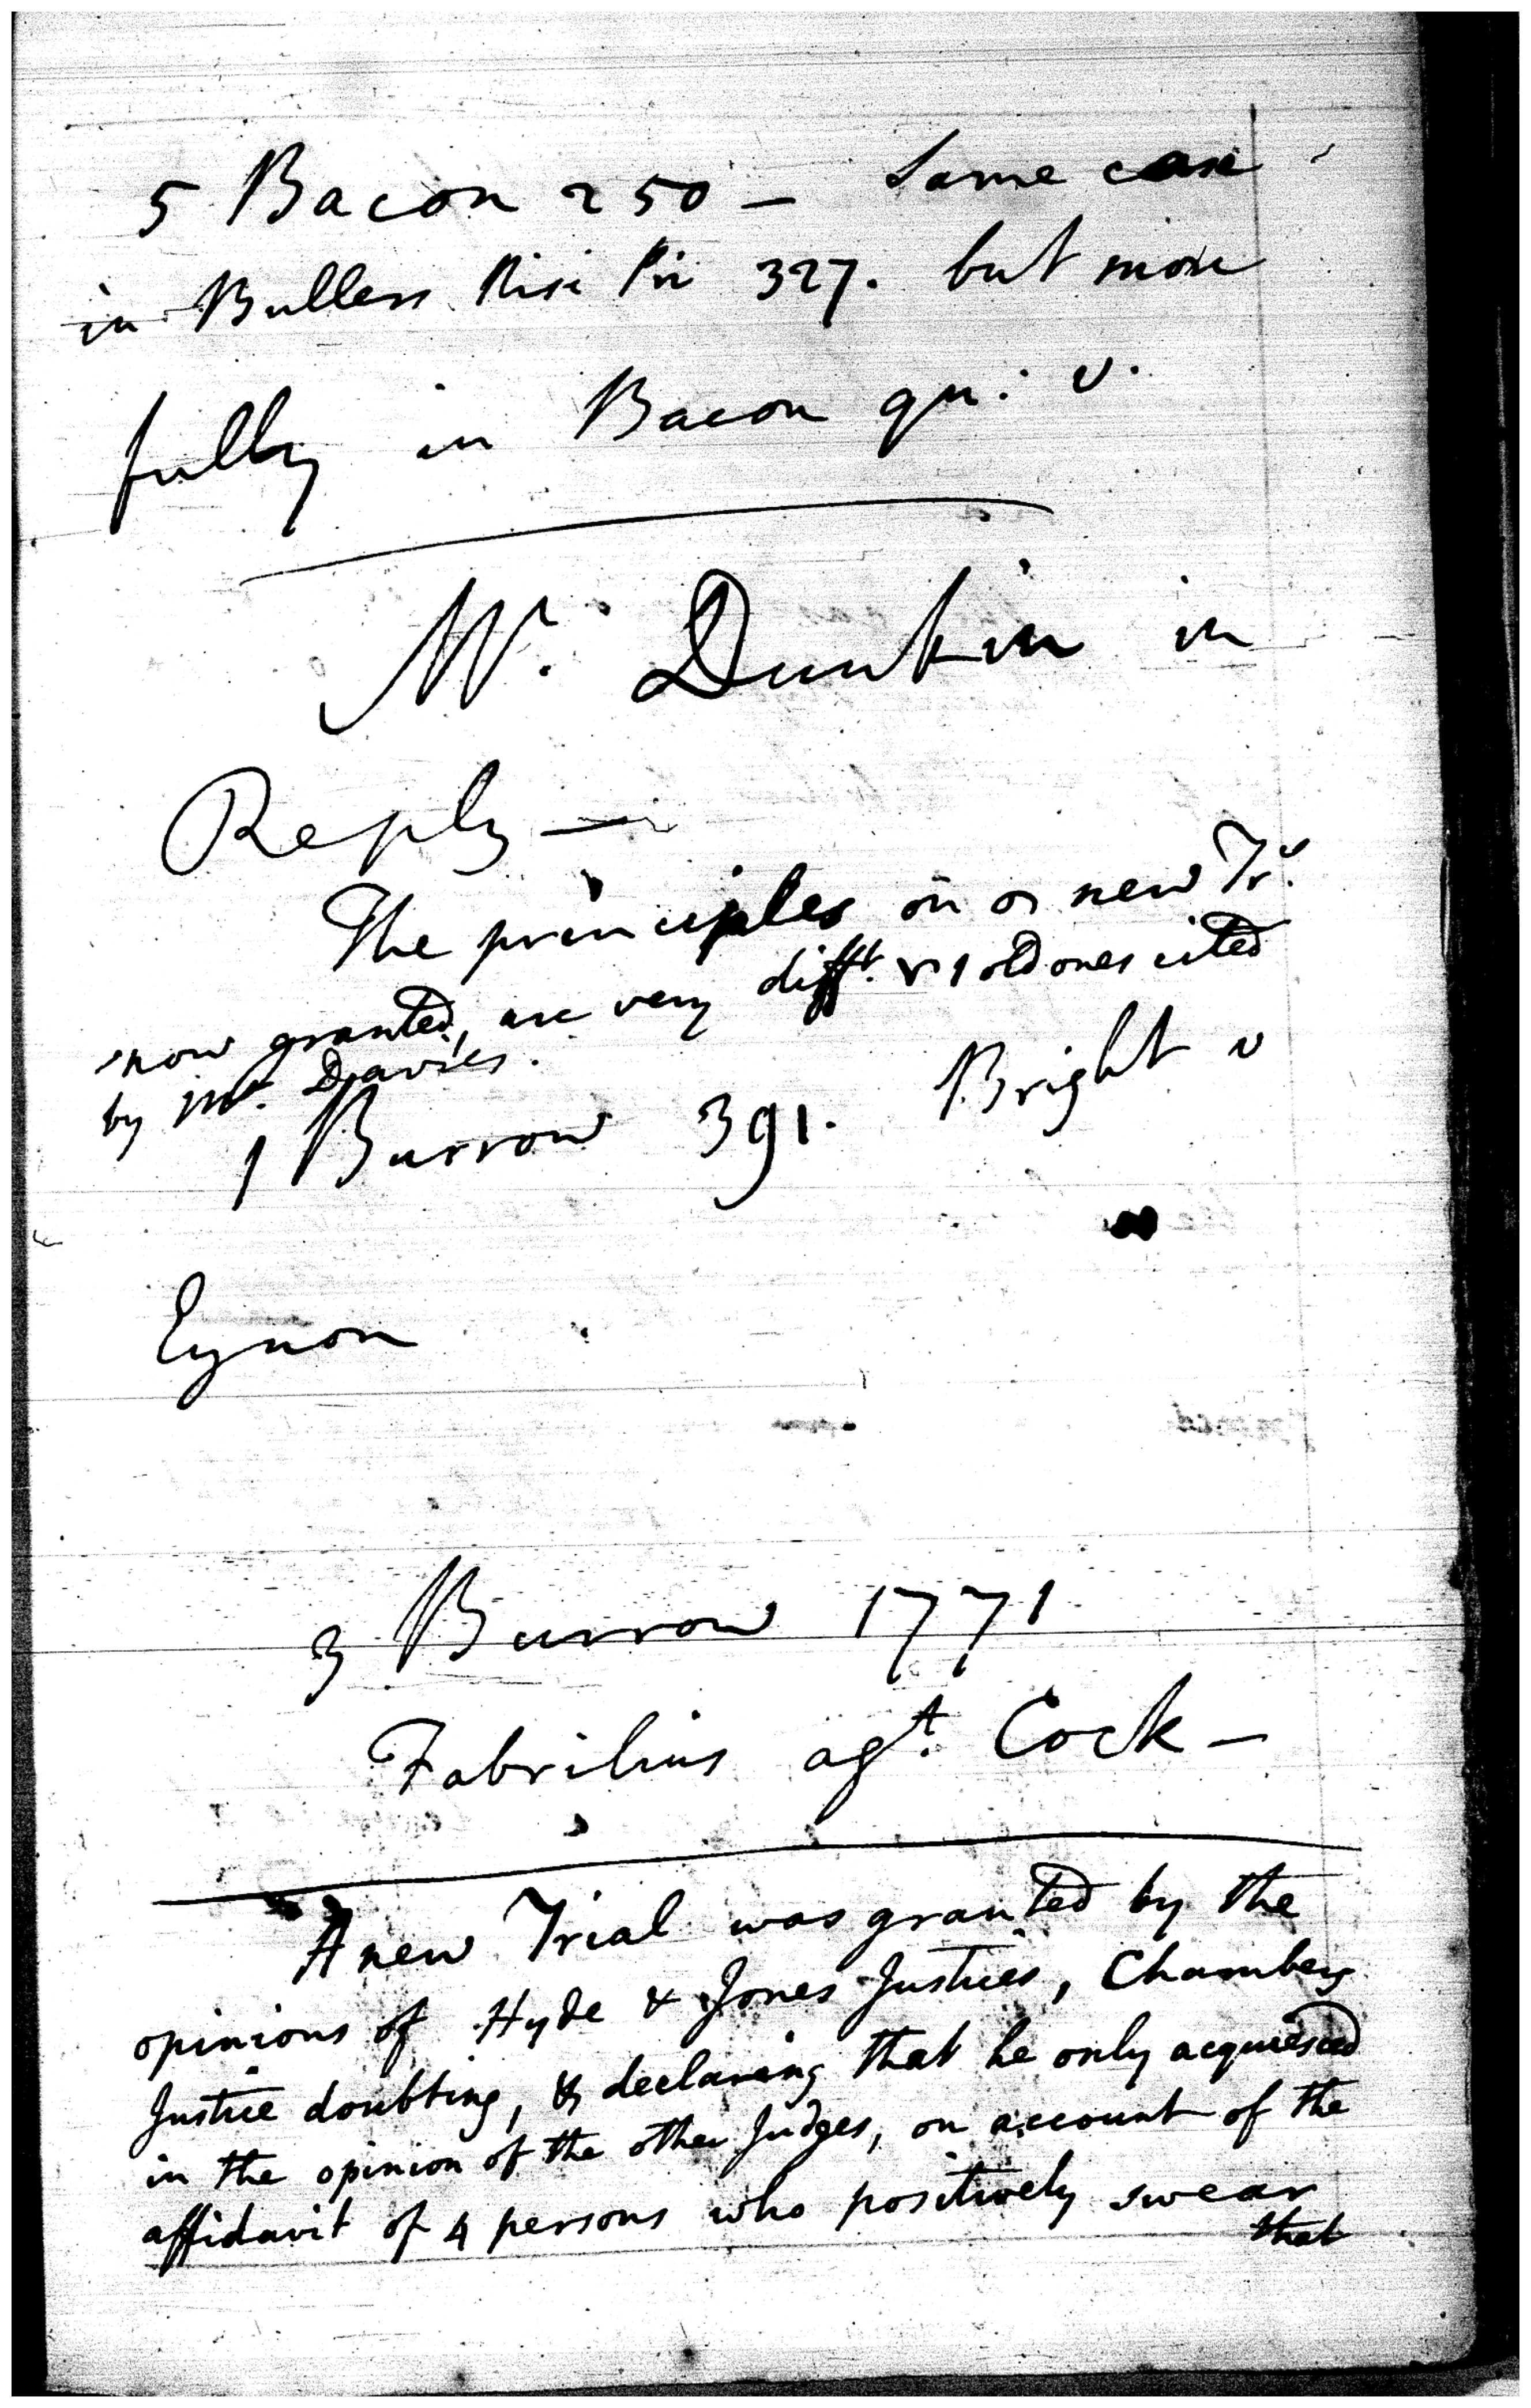 5 Bacon 250 — Same case
in Bullers Nisi Pri 327. but more
fully in Bacon qu: v.
Mr. Dunkin in
Reply —
The principles on new Trs.
now granted, are very difft. old ones cited
by Mr. Davies.
1 Burrow 391. Bright v
Eynon
3 Burrow 1771
Fabrilius agt. Cock —
A new Trial was granted by the
opinions of Hyde & Jones Justices, Chambers
Justice doubting, & declaring that he only acquiesced
in the opinion of the other Judges, on account of the
affidavit of 4 persons who positively swear
that